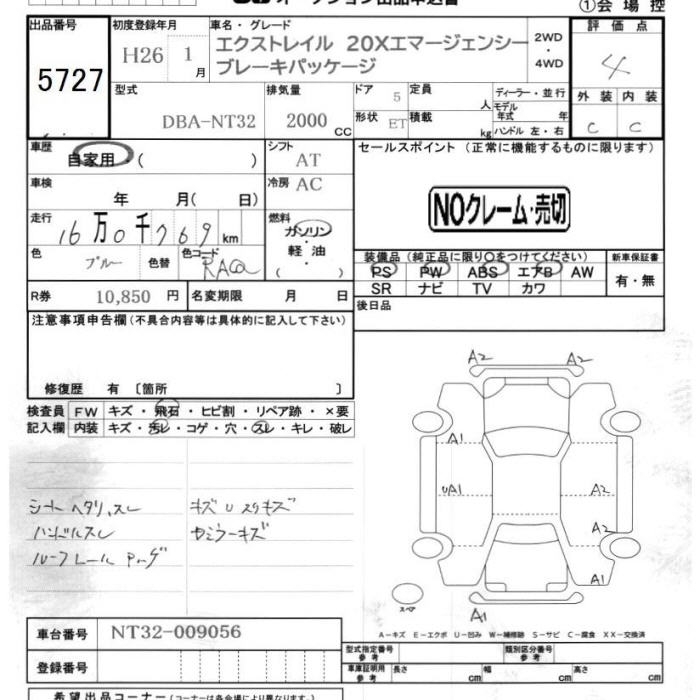 オークション出品申込書
①会場控
出品番号 初度登録年月 車名・グレード 評価点
5727 H26 1月 エクストレイル 20Xエマージェンシーブレーキパッケージ 2WD・4WD 4
型式 排気量 ドア 5 定員 人 ディーラー・並行 外装 内装
DBA-NT32 2000 CC 形状 ET 積載 kg モデル年式 年 ハンドル 左・右 C C
車歴 自家用・( ) シフト AT セールスポイント (正常に機能するものに限ります)
車検 年 月( 日) 冷房 AC
NOクレーム・売切
走行 16万0千769km 燃料 ガソリン・軽油 ( )
色 ブルー 色替 色コード RAQ
装備品(純正品に限り○をつけてください) 新車保証書
PS PW ABS エアB AW 有・無
SR ナビ TV カワ
R券 10,850円 名変期限 月 日 後日品
注意事項申告欄(不具合内容等は具体的に記入して下さい)
修復歴 有 〔箇所 〕
検査員 FW キズ・飛石・ヒビ割・リペア跡・×要
記入欄 内装 キズ・汚レ・コゲ・穴・スレ・キレ・破レ
A2 A2
A1
UA1 A2
A2
A1
A1
シートヘタリ、スレ キズUスリキズ
ハンドルスレ
ルーフレール
スペア
A－キズ E－エクボ U－凹み W－補修跡 S－サビ C－腐食 XX－交換済
車台番号 NT32-009056
登録番号
型式指定番号 参考 類別区分番号 参考
車庫証明用 参考 長さ cm 幅 cm 高さ cm
希望出品コーナー(コーナーは各会場により異なります)